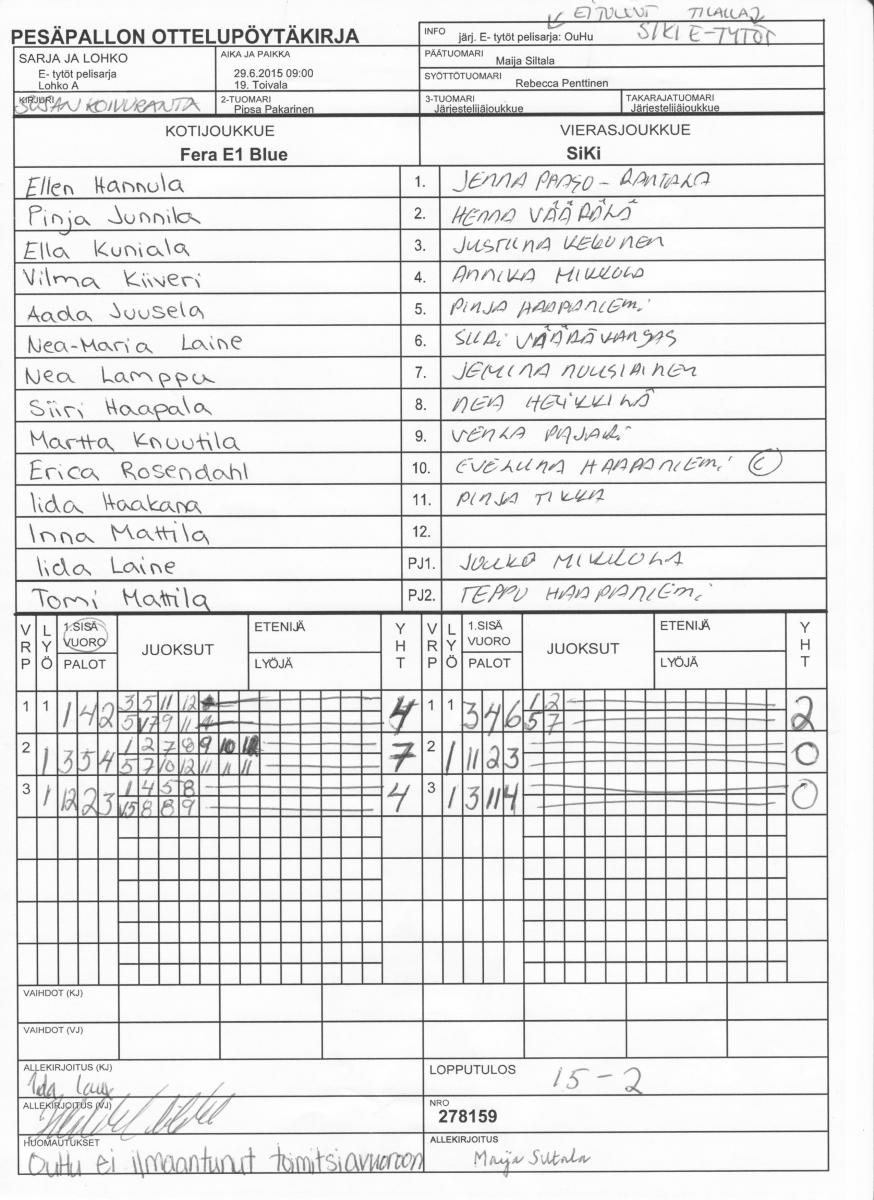 EI TULLUT TILALLA
PESÄPALLON OTTELUPÖYTÄKIRJA
INFO järj. E- tytöt pelisarja: OuHu SIKI E-TYTÖT
SARJA JA LOHKO
E- tytöt pelisarja
Lohko A
AIKA JA PAIKKA
29.6.2015 09:00
19. Toivala
PÄÄTUOMARI
Maija Siltala
SYÖTTÖTUOMARI
Rebecca Penttinen
KIRJURI
SUSAN KOIVURANTA
2-TUOMARI
Pipsa Pakarinen
3-TUOMARI
Järjestelijäjoukkue
TAKARAJATUOMARI
Järjestelijäjoukkue
KOTIJOUKKUE
Fera E1 Blue
VIERASJOUKKUE
SiKi
Ellen Hannula 1. JENNA PAASO-RANTALA
Pinja Junnila 2. HENNA VÄÄRÄLÄ
Ella Kuniala 3. JUSTIINA KEKONEN
Vilma Kiiveri 4. ANNIKA MIKKOLA
Aada Juusela 5. PINJA HAAPANIEMI
Nea-Maria Laine 6. SIIRI VÄÄRÄKANGAS
Nea Lamppu 7. JEMINA NOUSIAINEN
Siiri Haapala 8. NEA HEIKKILÄ
Martta Knuutila 9. VENLA PAJARI
Erica Rosendahl 10. EVELIINA HAAPANIEMI C
Iida Haakana 11. PINJA TIKKA
Inna Mattila 12.
Iida Laine PJ1. JOUKO MIKKOLA
Tomi Mattila PJ2. TEPPO HAAPANIEMI
VRP LYÖ 1.SISÄ VUORO PALOT JUOKSUT ETENIJÄ LYÖJÄ YHT VRP LYÖ 1.SISÄ VUORO PALOT JUOKSUT ETENIJÄ LYÖJÄ YHT
1 1 1 4 2 3 5 11 12 4 1 1 3 4 6 1 2 2
5 V7 9 11 5 7
2 1 3 5 4 1 2 7 8 9 10 12 7 2 1 11 2 3 0
5 7 10 12 11 11 11
3 1 12 2 3 1 4 5 8 4 3 1 3 11 4 0
V5 8 8 9
VAIHDOT (KJ)
VAIHDOT (VJ)
ALLEKIRJOITUS (KJ)
Iida Laine
LOPPUTULOS 15-2
ALLEKIRJOITUS (VJ)
NRO
278159
HUOMAUTUKSET
OuHu ei ilmaantunut toimitsiavuoroon
ALLEKIRJOITUS
Maija Siltala